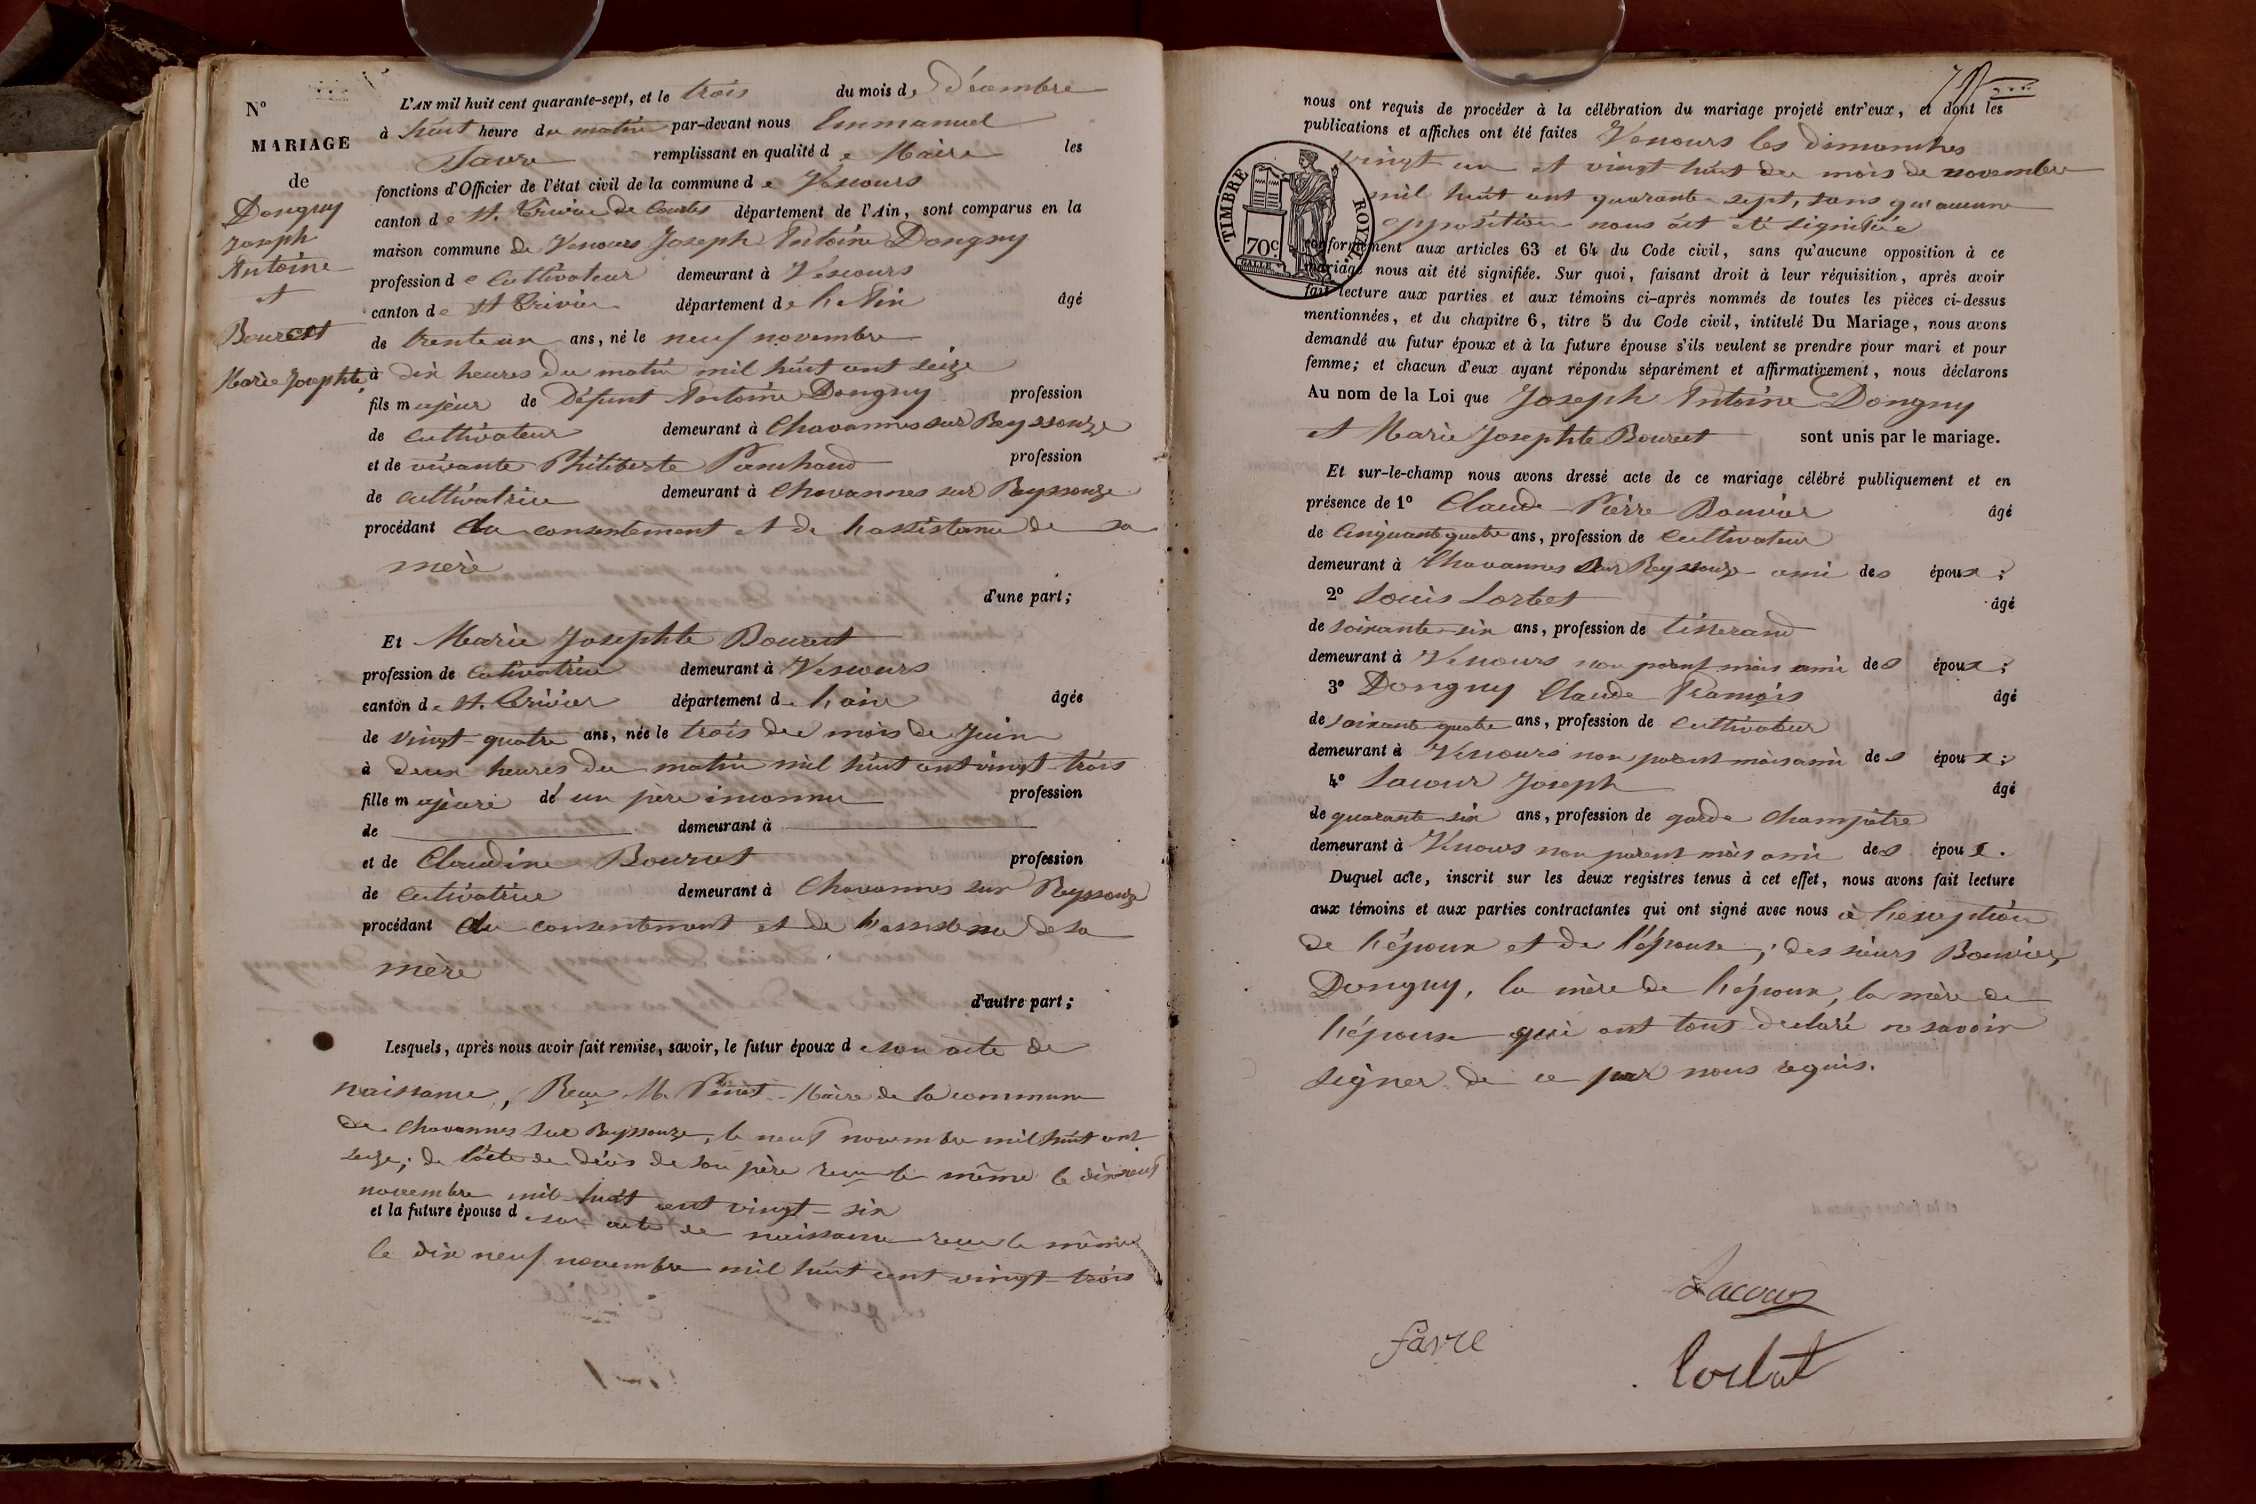 N°
MARIAGE
de
Donguy
Joseph
Antoine
et
Bourcet
Marie Josephte
L'AN mil huit cent quarante-sept, et le trois du mois de Décembre
à huit heure du matin par-devant nous Emmanuel
Favre remplissant en qualité de Maire les
fonctions d'Officier de l'état civil de la commune de Vescours
canton de St. Trivier de Courtes département de l'Ain, sont comparus en la
maison commune de Vescours Joseph Antoine Donguy
profession de Cultivateur demeurant à Vescours
canton de St Trivier département de l'Ain âgé
de trente un ans, né le neuf novembre
à dix heures du matin mil huit cent seize
fils majeur de Défunt Antoine Donguy profession
de Cultivateur demeurant à Chavannes sur Reyssouze
et de vivante Philiberte Panchaud profession
de Cultivatrice demeurant à Chavannes sur Reyssouze
procédant du consentement et de l'assistance de sa
mère
d'une part;
Et Marie Josephte Bourcet
profession de Cultivatrice demeurant à Vescours
canton de St. Trivier département de l'ain âgée
de vingt-quatre ans, née le trois du mois de Juin
à deux heures du matin mil huit cent vingt-trois
fille majeure de un père inconnu profession
de demeurant à
et de Claudine Bourcet profession
de Cultivatrice demeurant à Chavannes sur Reyssouze
procédant du consentement et de l'assistance de sa
mère
d'autre part;
Lesquels, après nous avoir fait remise, savoir, le futur époux de son acte de
naissance, Reçu M. Maire de la commune
de Chavannes sur Reyssouze, le neuf novembre mil huit cent
seize; de l'acte de décès de son père reçu le même le dix neuf
novembre mil huit cent vingt-six
et la future épouse de son acte de naissance reçu le même
le dix neuf novembre mil huit cent vingt-trois
nous ont requis de procéder à la célébration du mariage projeté entr'eux, et dont les
publications et affiches ont été faites Vescours les dimanches
vingt un et vingt huit du mois de novembre
mil huit cent quarante-sept, sans qu'aucune
opposition nous ait été signifiée
TIMBRE ROYAL
70c.
conformément aux articles 63 et 64 du Code civil, sans qu'aucune opposition à ce
mariage nous ait été signifiée. Sur quoi, faisant droit à leur réquisition, après avoir
fait lecture aux parties et aux témoins ci-après nommés de toutes les pièces ci-dessus
mentionnées, et du chapitre 6, titre 5 du Code civil, intitulé Du Mariage, nous avons
demandé au futur époux et à la future épouse s'ils veulent se prendre pour mari et pour
femme; et chacun d'eux ayant répondu séparément et affirmativement, nous déclarons
Au nom de la Loi que Joseph Antoine Donguy
et Marie Josephte Bourcet sont unis par le mariage.
Et sur-le-champ nous avons dressé acte de ce mariage célébré publiquement et en
présence de 1° Claude Pierre Bouvier âgé
de Cinquante quatre ans, profession de Cultivateur
demeurant à Chavannes sur Reyssouze ami des époux;
2° Louis Lorbet âgé
de soixante-six ans, profession de tisserand
demeurant à Vescours non parent mais ami des époux;
3° Donguy Claude François âgé
de soixante quatre ans, profession de Cultivateur
demeurant à Vescours non parent mais ami des époux;
4° Lacour Joseph âgé
de quarante-six ans, profession de garde champêtre
demeurant à Vescours non parent mais ami des époux.
Duquel acte, inscrit sur les deux registres tenus à cet effet, nous avons fait lecture
aux témoins et aux parties contractantes qui ont signé avec nous à l'exception
de l'époux et de l'épouse, des sieurs Bouvier,
Donguy, la mère de l'époux, la mère de
l'épouse qui ont tous déclaré ne savoir
signer de ce par nous requis.
Lacour
favre
Lorbat